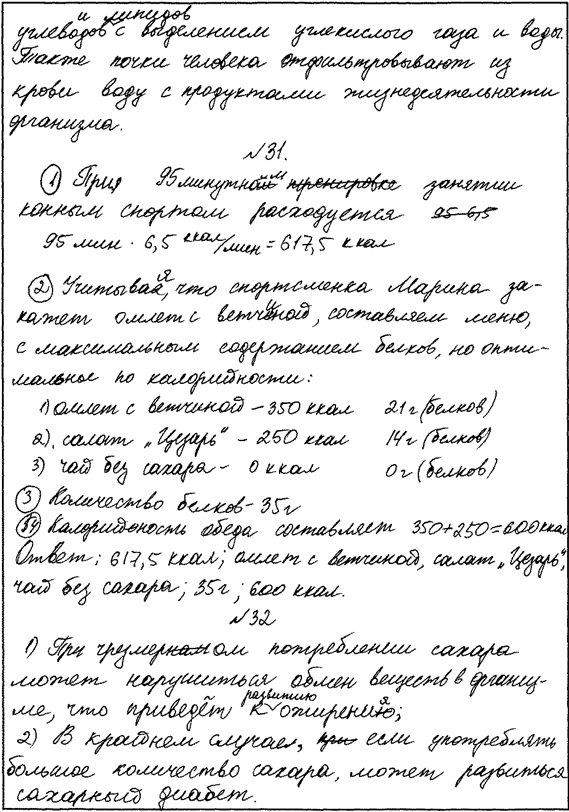 и липидов
углеводов с выделением углекислого газа и воды.
Также почки человека отфильтровывают из
крови воду с продуктами жизнедеятельности
организма.
№31.
① При 95 минутном тренировке занятии
конным спортом расходуется 95 6,5
95 мин · 6,5 ккал/мин = 617,5 ккал
② Учитывая, что спортсменка Марина за-
кажет омлет с ветчиной, составляем меню,
с максимальным содержанием белков, но опти-
мальное по калорийности:
1) омлет с ветчиной – 350 ккал 21 г (белков)
2) салат „Цезарь" – 250 ккал 14 г (белков)
3) чай без сахара – 0 ккал 0 г (белков)
③ Количество белков – 35 г
④ Калорийность обеда составляет 350+250=600 ккал
Ответ: 617,5 ккал; омлет с ветчиной, салат „Цезарь",
чай без сахара; 35 г; 600 ккал.
№32
1) При чрезмерном потреблении сахара
может нарушиться обмен веществ в организ-
ме, что приведёт к развитию ожирения;
2) В крайнем случае, при если употреблять
большое количество сахара, может развиться
сахарный диабет.